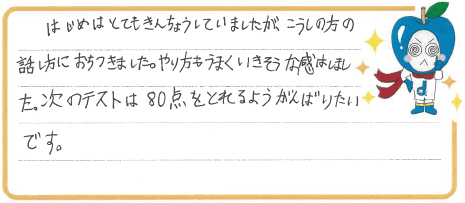 はじめはとてもきんちょうしていましたが、こうしの方の
話し方におちつきました。やり方もうまくいきそうな感はしまし
た。次のテストは80点をとれるようがんばりたい
です。
d